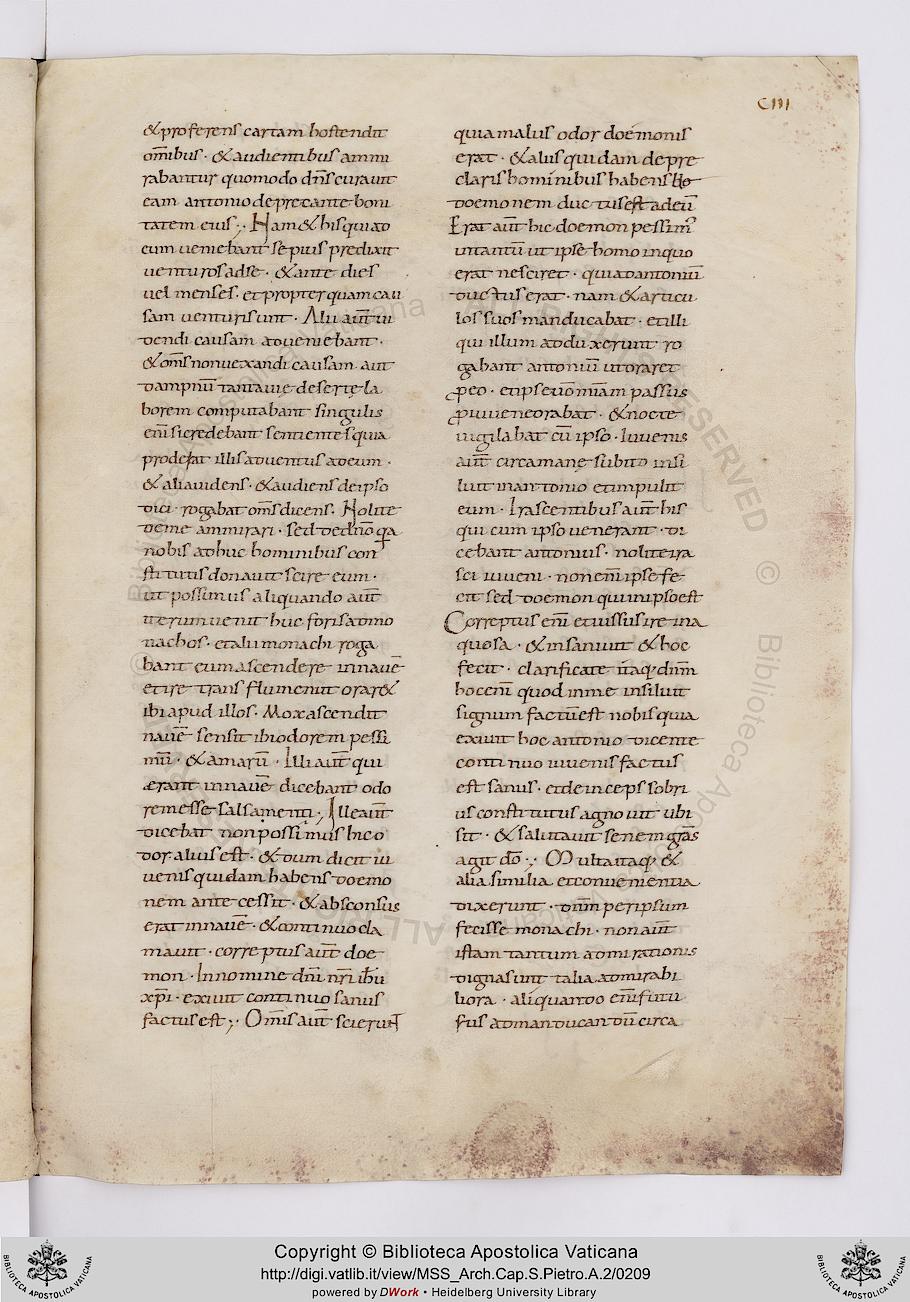 CIII
& proferens cartam hostendit
om̄ibus · & audientibus ammi
rabantur quomodo dn̄s curauit
eam antonio deprecante boni
tatem eius ;· Nam & his qui ad
eum ueniebant sepius predixit
uenturos ad se · & ante dies
uel menses · et propter quam cau
sam uenturi sunt · Alii aut̄ ui
dendi causam adueniebant ·
& om̄s non uexandi causam aut
dampniū tantaui& deserte la
borem computabant singulis
eni̅ si credebant sentientes quia
prodesat illis aduentus ad eum ·
& alia uidens · & audiens de ipso
dici · rogabat om̄s dicens · Nolite
de me ammirari · sed de dn̄o qa
nobis adhuc hominibus con
stitutis donauit scire eum ·
ut possimus aliquando aut̄
iterum uenit huc foris ad mo
nachos · et alii monachi roga
bant eum ascendere in nauē
et ire trans flumen ut orar&
ibi apud illos · Mox ascendit
nauē sensit ibi odorem pessi
mū · & amarū · Illi aut̄ qui
ærant in nauē dicebant odo
rem esse salsamenti ·, Ille aut̄
dicebat non possimus hic o
dor alius est · & dum dicit iu
uenis quidam habens doemo
nem ante cessit · & absconsus
erat in nauē · & continuo cla
mauit · correptus aut̄ doe
mon · In nomine dn̄i nr̄i ihū
xp̄i · exiuit continuo sanus
factus est ;· Om̄is aut̄ scierunt
quia malus odor doemonis
erat · & alius quidam de pre
claris hominibus habens ho
doemonem ductus est ad eū
Erat aut̄ hic doemon pessim᾽
in tantū ut ipse homo in quo
erat nesciret · quia ad antoniū
ductus erat · nam & articu
los suos manducabat · et illi
qui illum adduxerunt ro
gabant antoniū ut oraret
ꝓ eo · et ipse uō mi̅am passus
ꝓ iuuene orabat · & nocte
uigilabat cū ipso · Iuuenis
aut̄ circa mane subito insi
luit in antonio et impulit
eum · Irascentibus aut̄ his
qui cum ipso uenerant · di
cebant antonius · nolite ira
sci iuueni · non eni̅ ipse fe
cit sed doemon qui in ipso est
Correptus eni̅ et iussus ire in a
quosa · & insaniuit & hoc
fecit · clarificate itaq; dnm̄
hoc eni̅ quod in me insiluit
signum factū est nobis quia
exiuit hoc antonio dicente
continuo iuuenis factus
est sanus · et deinceps sobri
us constitutus agnouit ubi
sit · & salutauit senem gr̄as
agit dō ;· Multa itaq; &
alia similia et conuenientia
dixerunt · dnm̄ per ipsum
fecisse monachi · non aut
istam tantum admirationis
digna sunt talia admirabi
liora · aliquando eni̅ futu
sus ad manducandū circa
Copyright © Biblioteca Apostolica Vaticana
http://digi.vatlib.it/view/MSS_Arch.Cap.S.Pietro.A.2/0209
powered by DWork • Heidelberg University Library
BIBLIOTECA APOSTOLICA VATICANA
BIBLIOTECA APOSTOLICA VATICANA